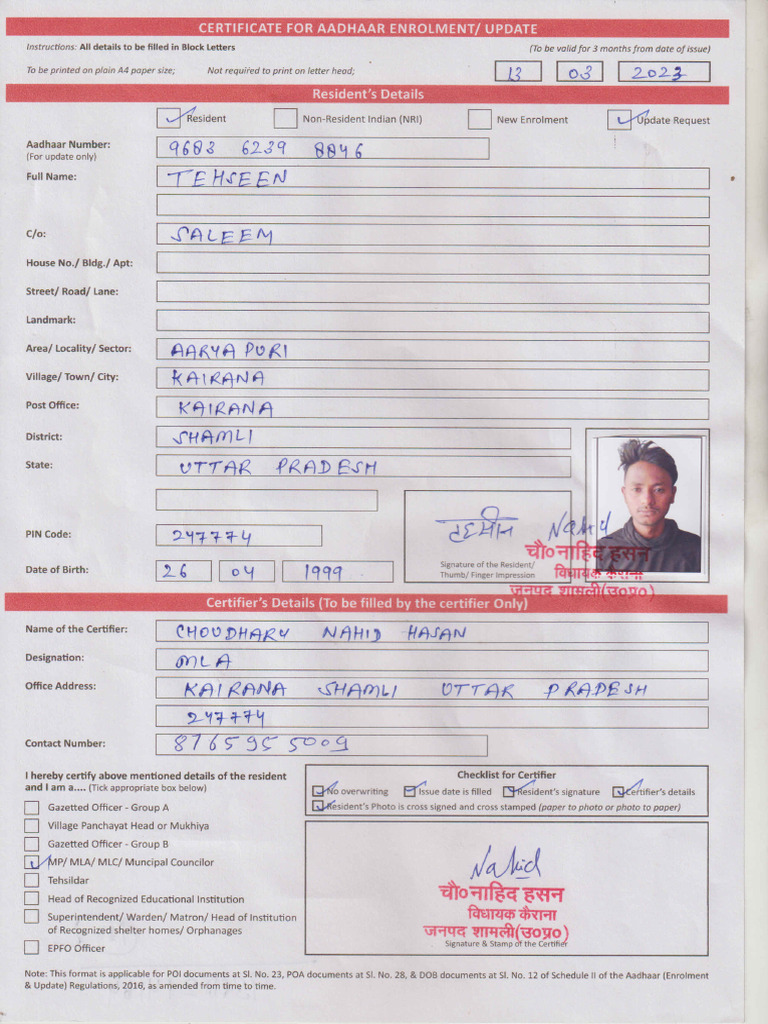 CERTIFICATE FOR AADHAAR ENROLMENT/ UPDATE
Instructions: All details to be filled in Block Letters (To be valid for 3 months from date of issue)
To be printed on plain A4 paper size; Not required to print on letter head; 13 03 2023
Resident's Details
Resident Non-Resident Indian (NRI) New Enrolment Update Request
Aadhaar Number: 9683 6239 8846
(For update only)
Full Name: TEHSEEN
C/o: SALEEM
House No./ Bldg./ Apt:
Street/ Road/ Lane:
Landmark:
Area/ Locality/ Sector: AARYA PURI
Village/ Town/ City: KAIRANA
Post Office: KAIRANA
District: SHAMLI
State: UTTAR PRADESH
PIN Code: 247774
तहसीन Nahid
चौ०नाहिद हसन
विधायक कैराना
जनपद शामली(उ०प्र०)
Signature of the Resident/
Thumb/ Finger Impression
Date of Birth: 26 04 1999
Certifier's Details (To be filled by the certifier Only)
Name of the Certifier: CHOUDHARY NAHID HASAN
Designation: MLA
Office Address: KAIRANA SHAMLI UTTAR PRADESH
247774
Contact Number: 8765955009
I hereby certify above mentioned details of the resident
and I am a.... (Tick appropriate box below)
Gazetted Officer - Group A
Village Panchayat Head or Mukhiya
Gazetted Officer - Group B
MP/ MLA/ MLC/ Muncipal Councilor
Tehsildar
Head of Recognized Educational Institution
Superintendent/ Warden/ Matron/ Head of Institution
of Recognized shelter homes/ Orphanages
EPFO Officer
Checklist for Certifier
No overwriting Issue date is filled Resident's signature Certifier's details
Resident's Photo is cross signed and cross stamped (paper to photo or photo to paper)
Nahid
चौ०नाहिद हसन
विधायक कैराना
जनपद शामली(उ०प्र०)
Signature & Stamp of the Certifier
Note: This format is applicable for POI documents at Sl. No. 23, POA documents at Sl. No. 28, & DOB documents at Sl. No. 12 of Schedule II of the Aadhaar (Enrolment
& Update) Regulations, 2016, as amended from time to time.